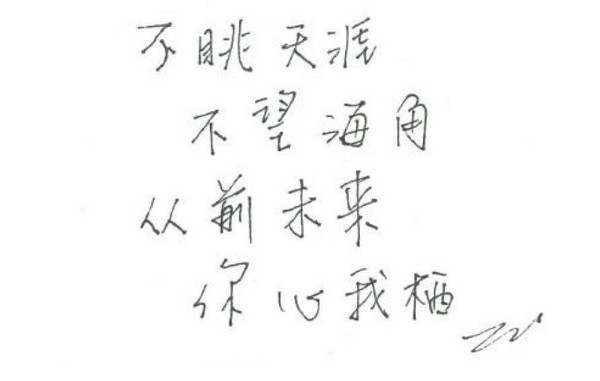 不眺天涯
不望海角
从前未来
你心我栖